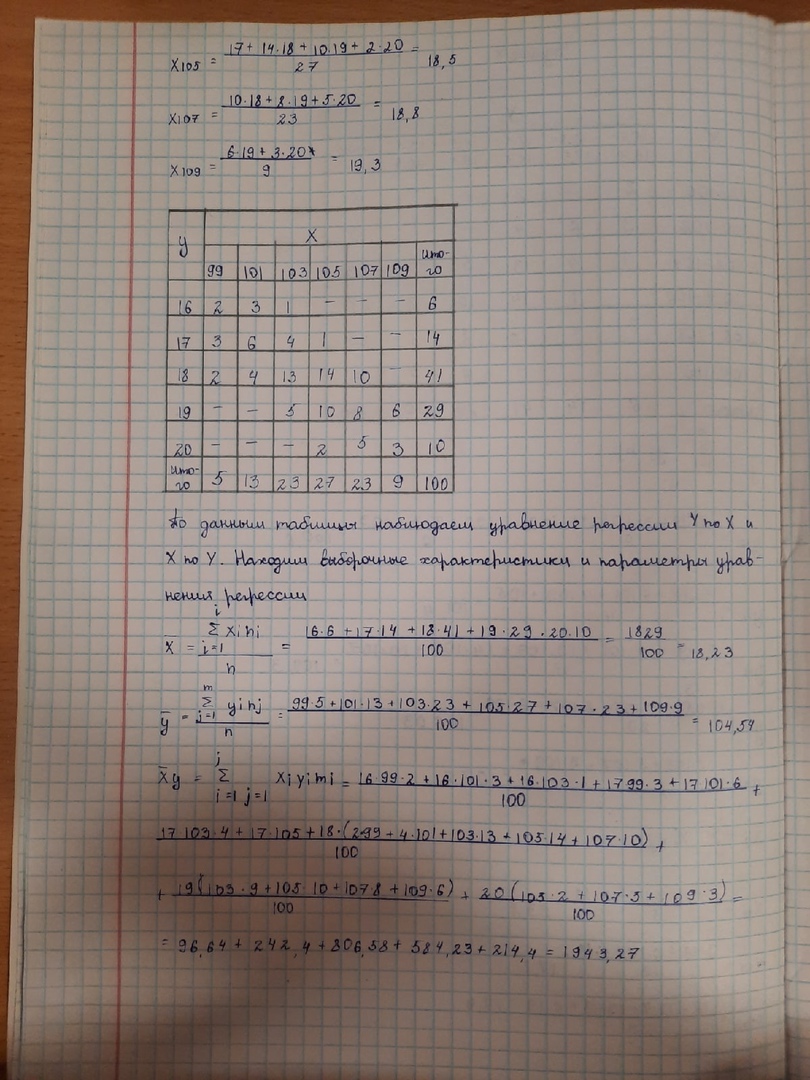 X105 = 17 + 14·18 + 10·19 + 2·20 / 27 = 18,5
X107 = 10·18 + 8·19 + 5·20 / 23 = 18,8
X109 = 6·19 + 3·20 / 9 = 19,3
y X
99 101 103 105 107 109 ито-го
16 2 3 1 – – – 6
17 3 6 4 1 – – 14
18 2 4 13 14 10 – 41
19 – – 5 10 8 6 29
20 – – – 2 5 3 10
ито-го 5 13 23 27 23 9 100
По данным таблицы наблюдаем уравнение регрессии Y по X и
X по Y. Находим выборочные характеристики и параметры урав-
нения регрессии
X̅ = i Σ j=1 xini / n = 16·6 + 17·14 + 18·41 + 19·29 · 20·10 / 100 = 1829 / 100 = 18,23
y̅ = m Σ j=1 yinj / n = 99·5 + 101·13 + 103·23 + 105·27 + 107·23 + 109·9 / 100 = 104,54
X̅y = j Σ i=1 j=1 Xiyimi = 16·99·2 + 16·101·3 + 16·103·1 + 1799·3 + 17 101·6 / 100 +
17 103·4 + 17·105 + 18·(299 + 4·101 + 103·13 + 105·14 + 107·10) / 100 +
+ 19(103·9 + 105·10 + 107·8 + 109·6) / 100 + 20(105·2 + 107·5 + 109·3) / 100 =
= 96,64 + 242,4 + 806,58 + 584,23 + 214,4 = 1943,27